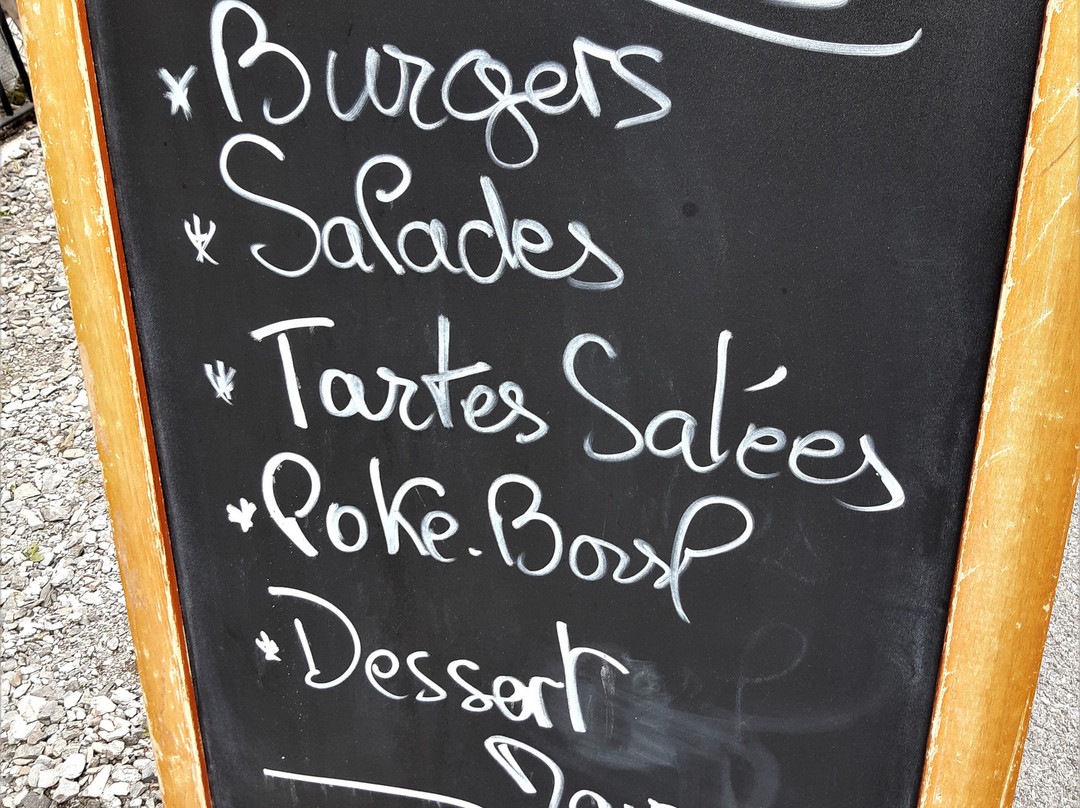 * Burgers
* Salades
* Tartes Salées
* Poke.Bowl
* Dessert